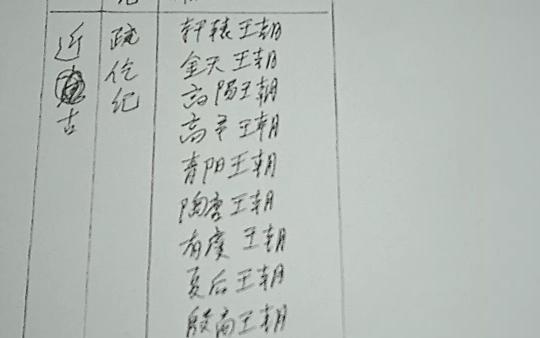 纪
近古
疏仡纪
轩辕王朝
金天王朝
高阳王朝
高辛王朝
青阳王朝
陶唐王朝
有虞王朝
夏后王朝
殷商王朝